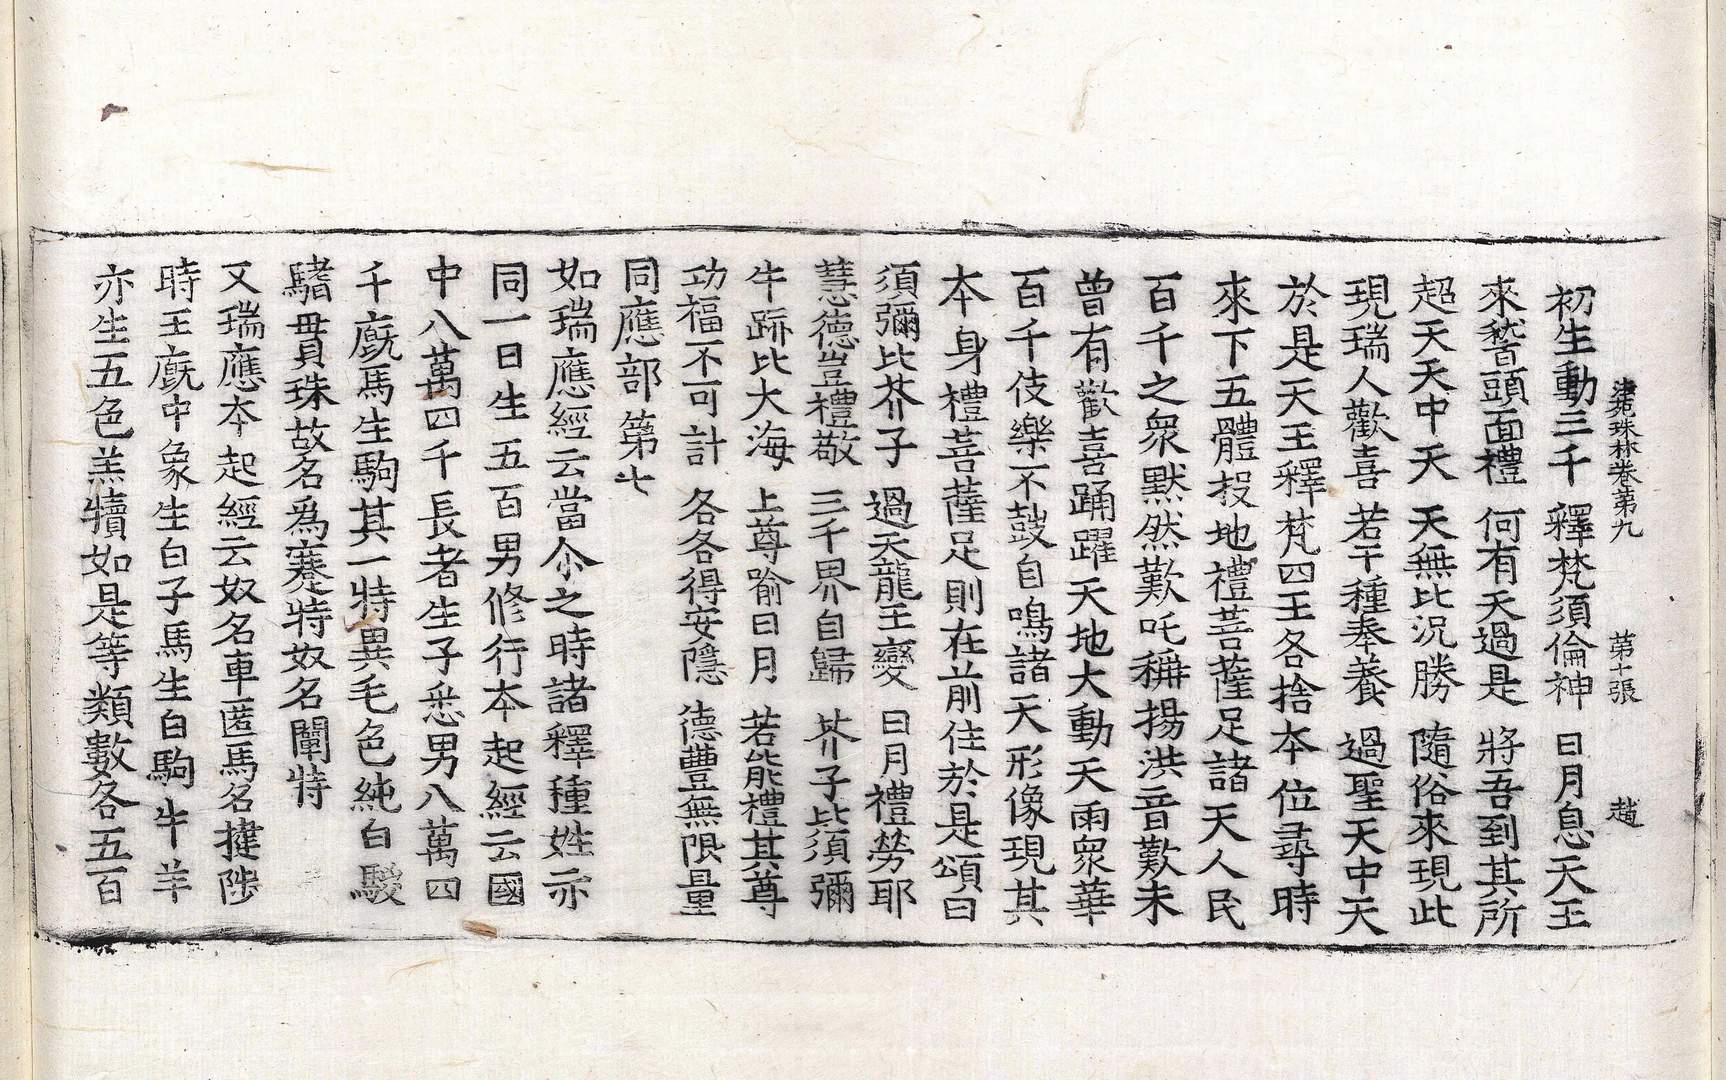 法苑珠林卷第九 第十張 趙
初生動三千 釋梵須倫神 日月息天王
來䭫頭面禮 何有天過是 將吾到其所
超天天中天 天無比況勝 隨俗來現此
現瑞人歡喜 若干種奉養 過聖天中天
於是天王釋梵四王各捨本位尋時
來下五體投地禮菩薩足諸天人民
百千之衆默然歎吒稱揚洪音歎未
曾有歡喜踊躍天地大動天雨衆華
百千伎樂不鼓自鳴諸天形像現其
本身禮菩薩足則在前住於是頌曰
須彌比芥子 過天龍王變 日月禮勞耶
慧德豈禮敬 三千界自歸 芥子比須彌
牛跡比大海 上尊喻日月 若能禮其尊
功福不可計 各各得安隱 德豐無限量
同應部第七
如瑞應經云當尒之時諸釋種姓亦
同一日生五百男修行本起經云國
中八萬四千長者生子悉男八萬四
千廐馬生駒其一特異毛色純白髮
䭷毌貫珠故名爲蹇特奴名闡特
又瑞應本起經云奴名車匿馬名揵陟
時王廐中象生白子馬生白駒牛羊
亦生五色羔犢如是等類數各五百